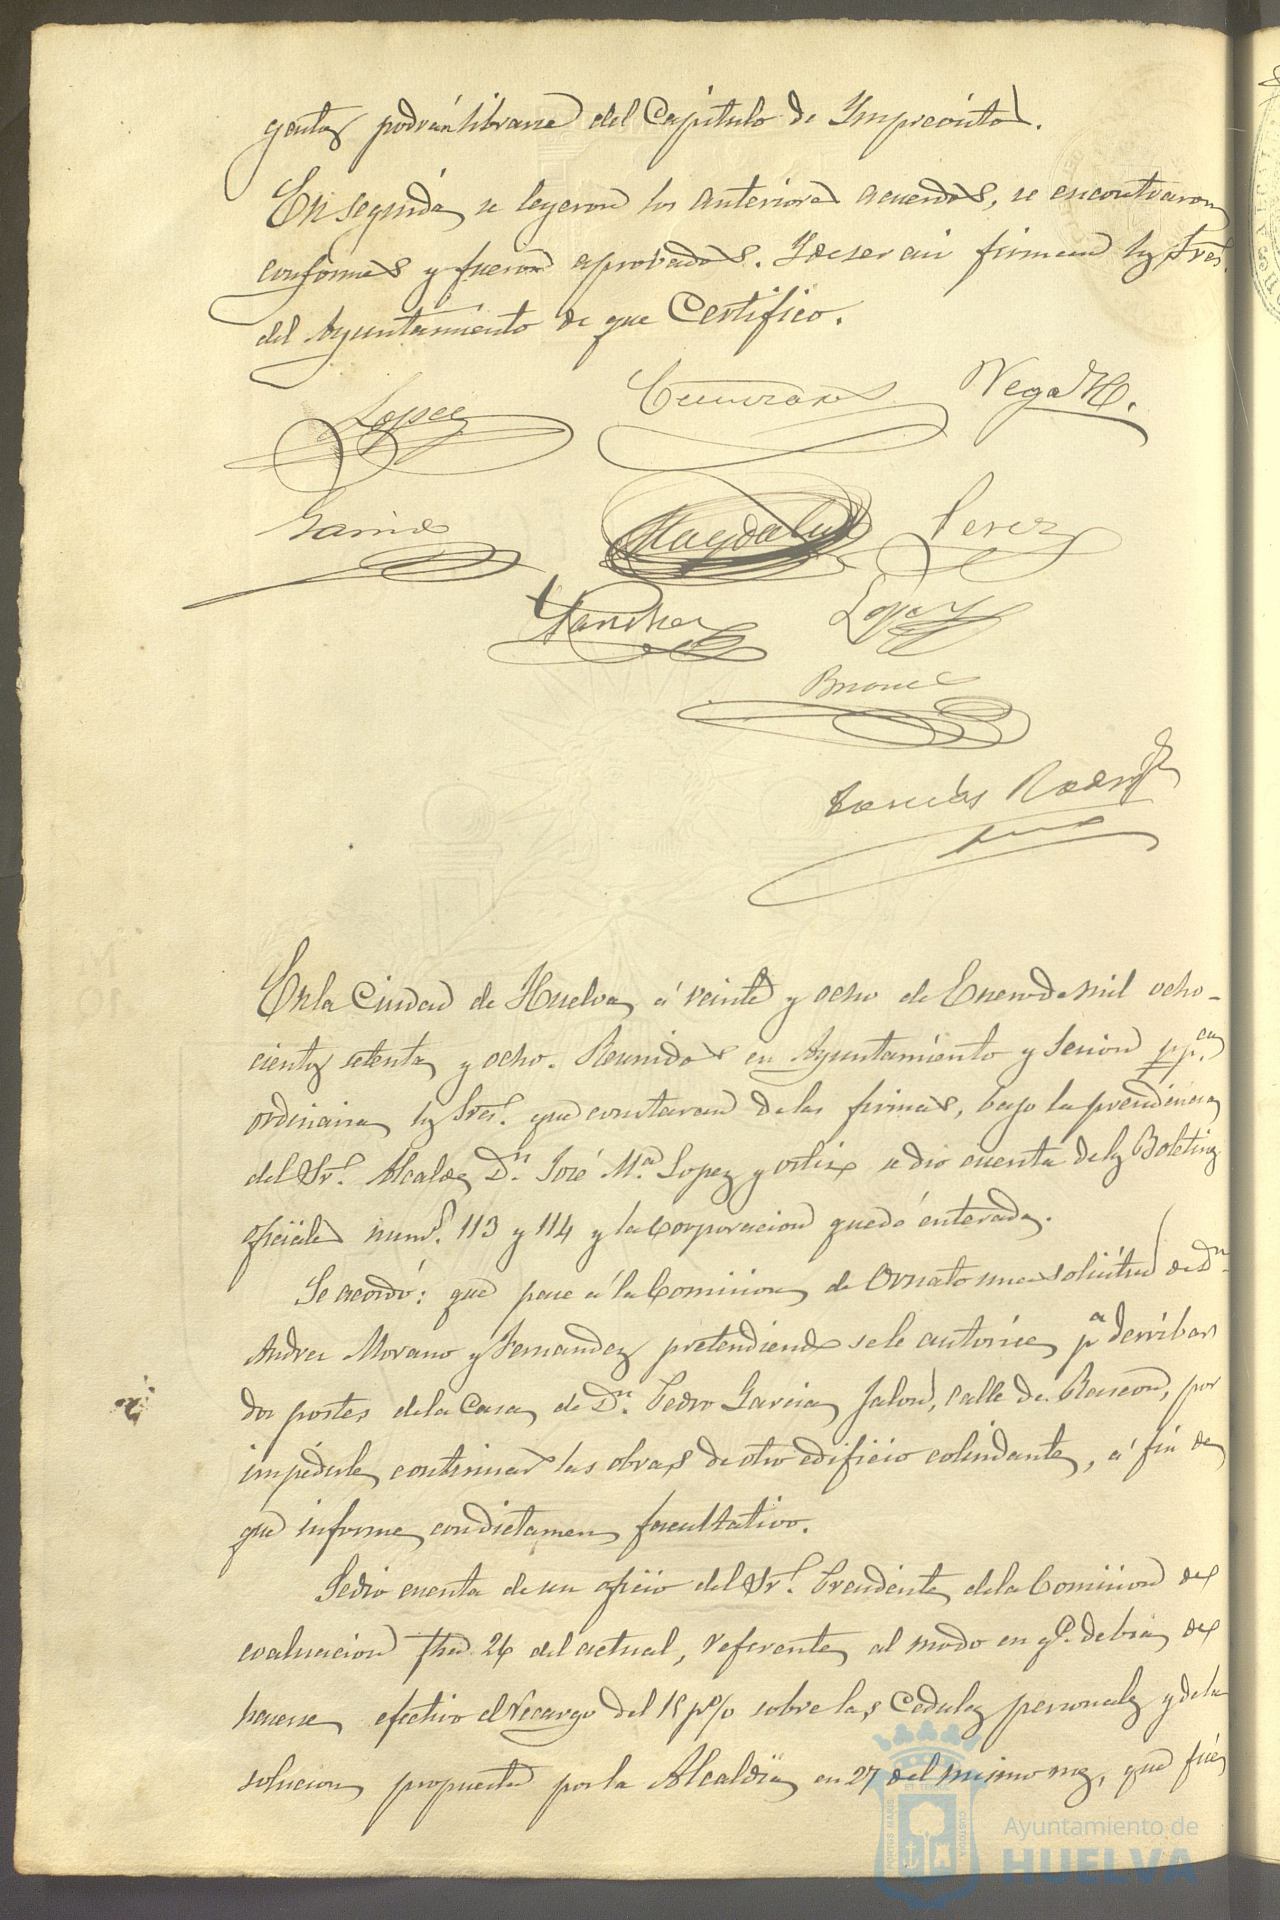 gentes podrán librarse del Capitulo de Imprevistos.
En seguida se leyeron los anteriores acuerdos, se encontraron
conformes y fueron aprobados. Y de ser asi firman los Sres.
del Ayuntamiento de que Certifico.
Lopez
Vega
Garrido
Magdalena
Perez
Sanchez
Lopez
Tomás Rodrig
En la Ciudad de Huelva á veinte y ocho de Enero de mil ocho-
cientos setenta y ocho. Reunidos en Ayuntamiento y Sesion
ordinaria los Sres. que constaran de las firmas, bajo la presidencia
del Sr. Alcalde Dn. José Ma. Lopez y Ortiz se dio cuenta de los Boletines
oficiales nums. 113 y 114 y la Corporacion quedó enterada.
Se acordó: que pase á la Comision de Ornato una solicitud de Dn.
Andres Morano y Fernandez pretendiendo se le autorice pa derribar
dos postes de la Casa de Dn. Pedro Garcia Jalon, calle de Rascon, por
impedirle continuar las obras de otro edificio colindante, á fin de
que informe con dictamen facultativo.
Se dió cuenta de un oficio del Sr. Presidente de la Comision de
evaluacion fha 26 del actual, referente al modo en qe. debia de
hacerse efectivo el recargo del 15 p% sobre las Cedulas personales y de la
solucion propuesta por la Alcaldia en 27 del mismo mes, que fué
PORTUS MARIS
ET TERRAE
CUSTODIA
Ayuntamiento de
HUELVA